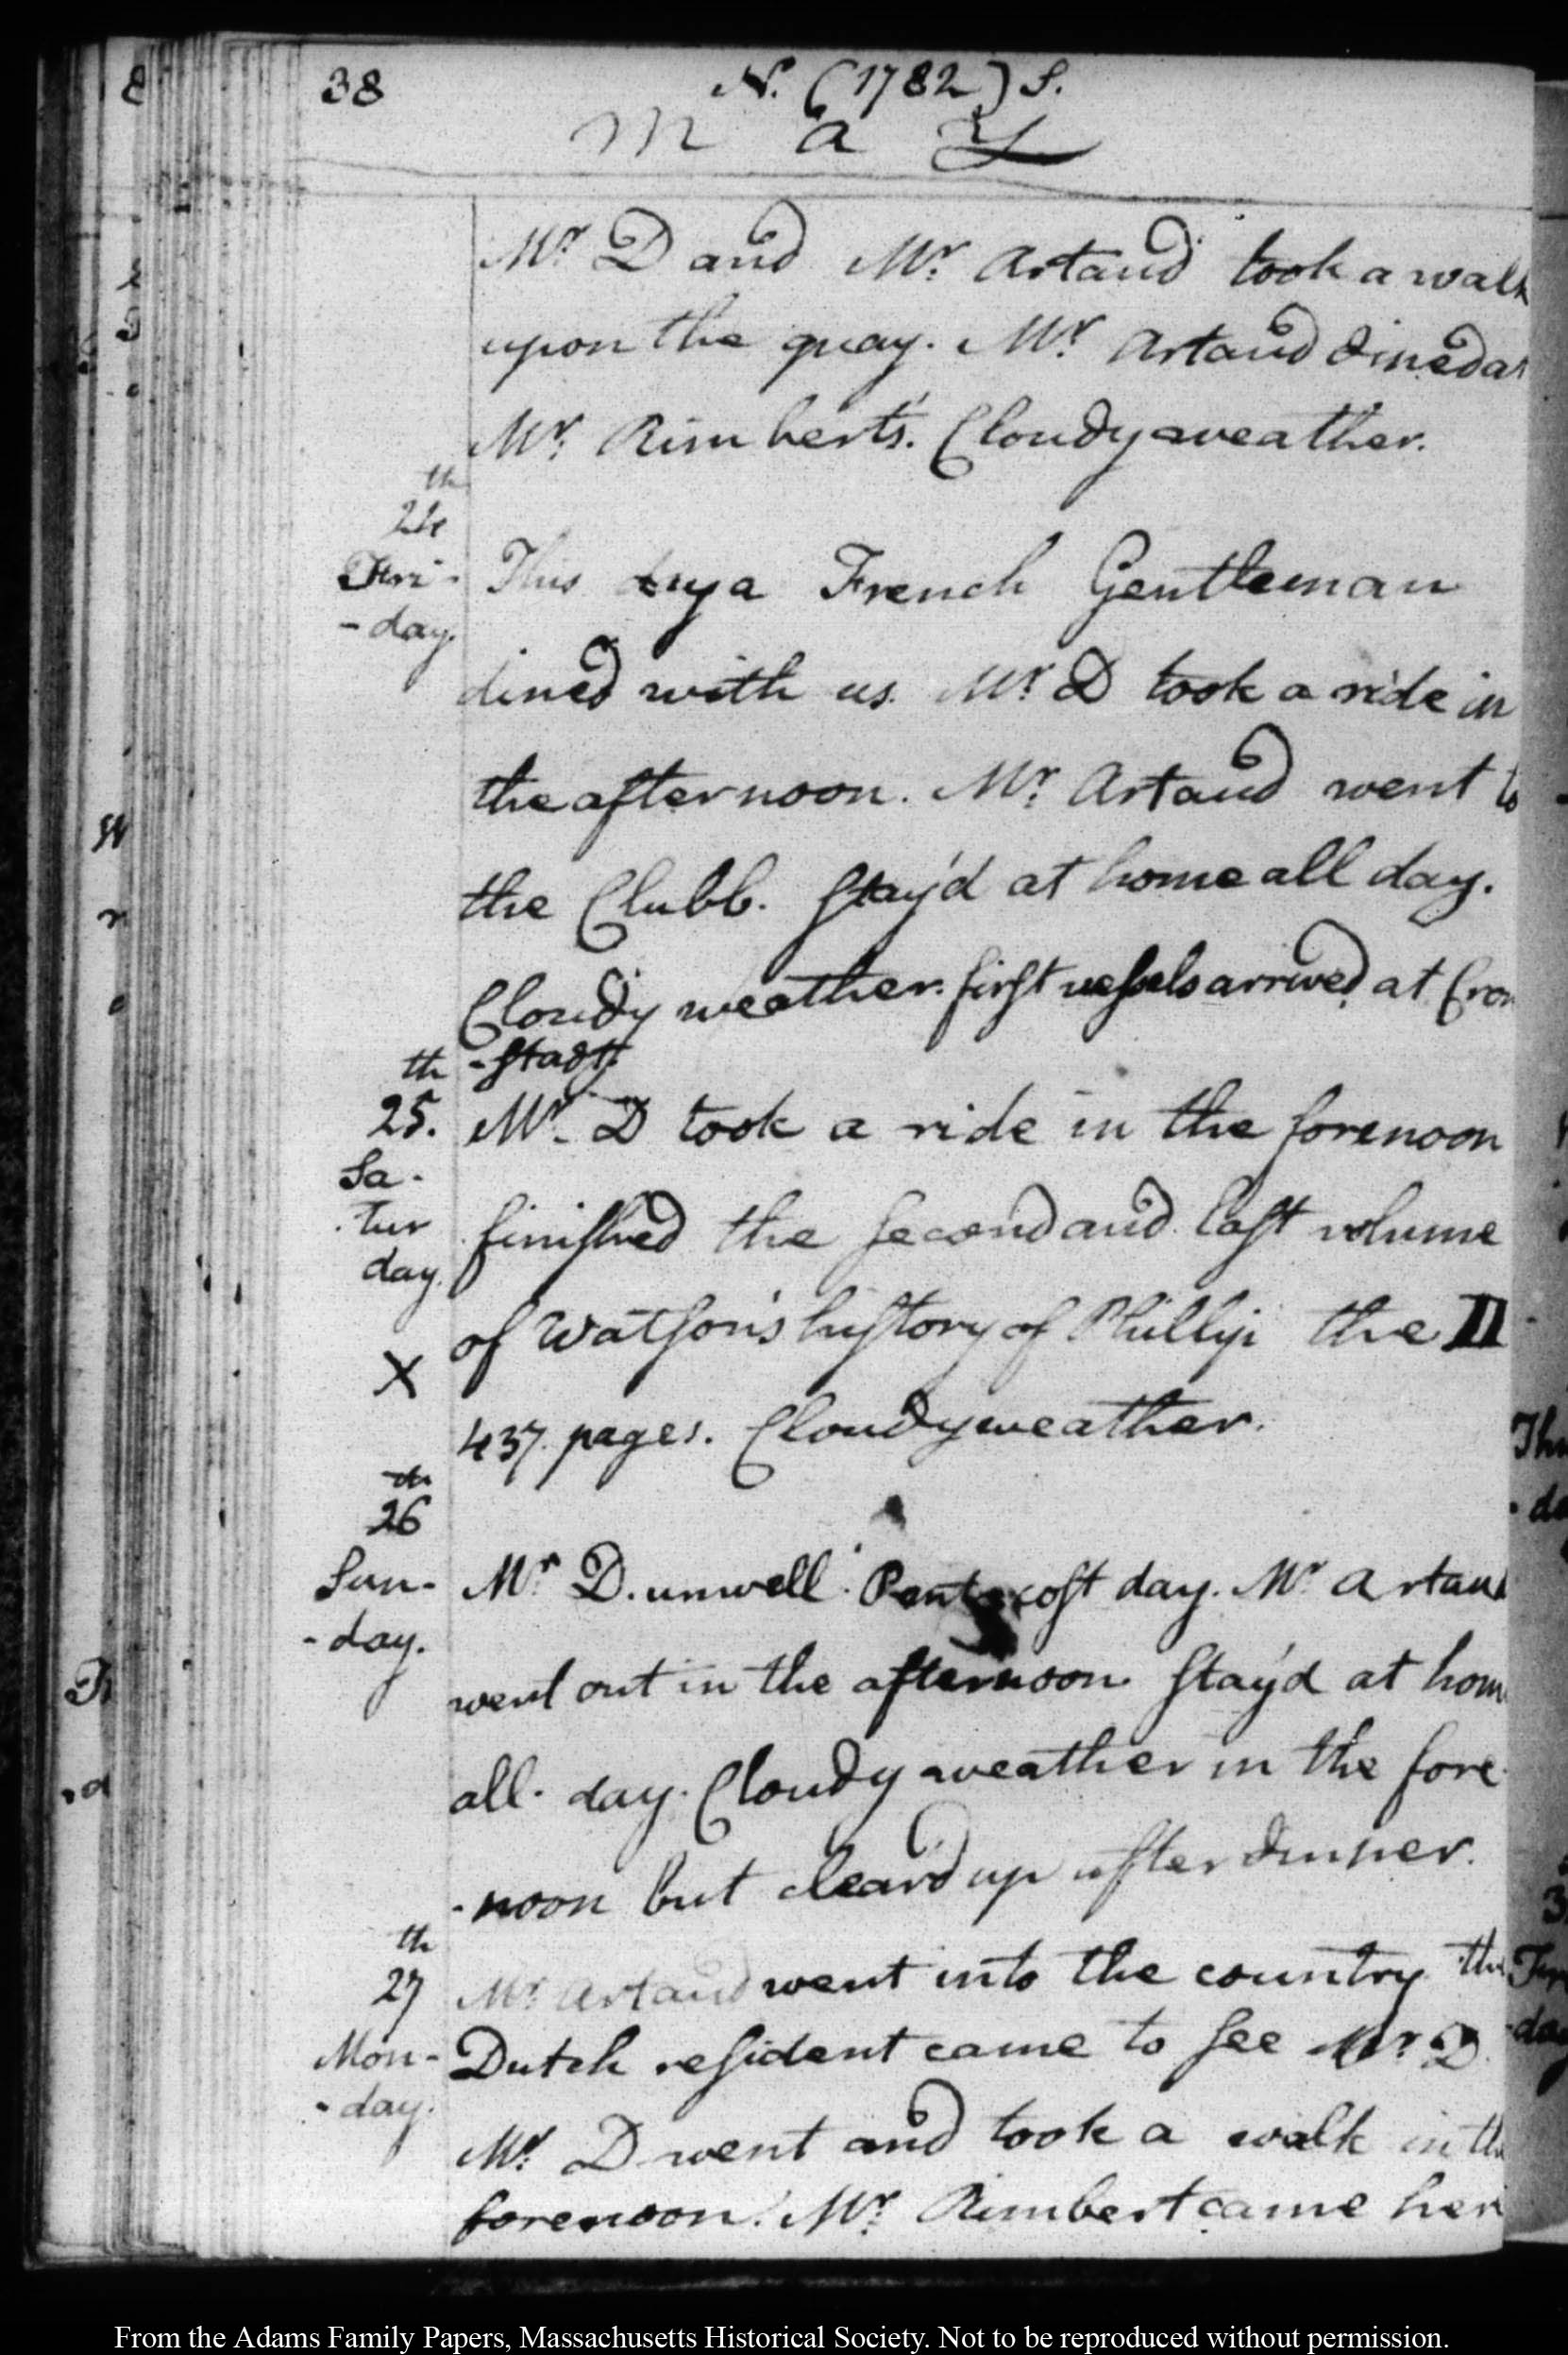 38
N. (1782) S.
May
Mr D and Mr. Artaud took a walk
upon the quay. Mr Artaud dined at
Mr. Rimbert's. Cloudy weather.
th
24
Fri-
-day.
This day a French Gentleman
dined with us. Mr. D took a ride in
the afternoon. Mr. Artaud went to
the Clubb. Stay'd at home all day.
Cloudy weather. first vessels arrived at Cron
-stadt.
th
25.
Sa-
-tur
day.
X
Mr. D took a ride in the forenoon
finished the second and last volume
of Watson's history of Phillip the II
437 pages. Cloudy weather.
th
26
Sun-
-day.
Mr D. unwell. Pentecost day. Mr Artaud
went out in the afternoon. Stay'd at home
all day. Cloudy weather in the fore-
-noon but clear'd up after dinner.
th
27
Mon-
-day.
Mr Artaud went into the country the
Dutch resident came to see Mr. D.
Mr. D went and took a walk in the
forenoon. Mr. Rimbert came here
From the Adams Family Papers, Massachusetts Historical Society. Not to be reproduced without permission.